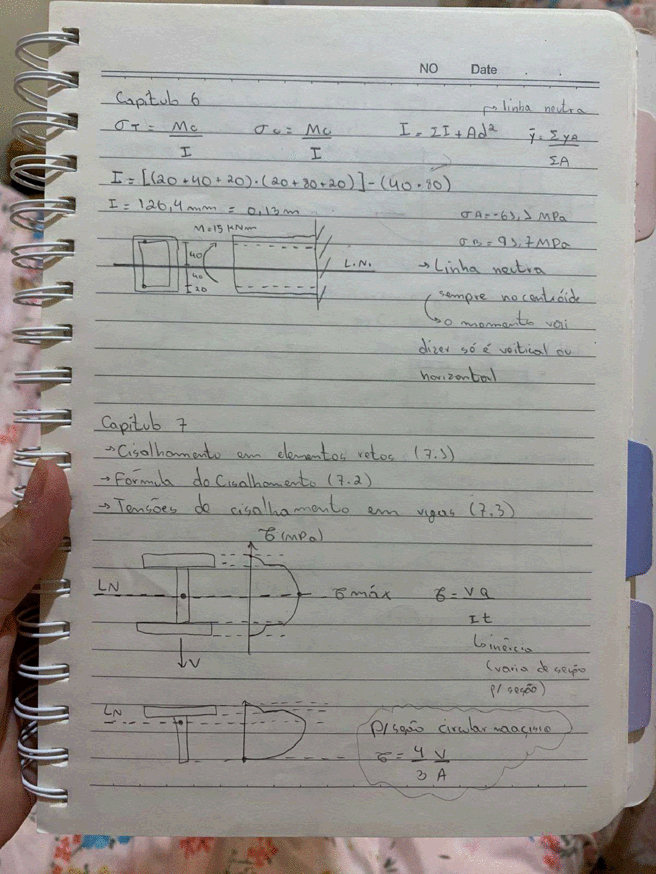 NO Date
Capítulo 6
→ linha neutra
σT = Mc/I σc = Mc/I I = ΣI + Ad² ȳ = ΣyA/ΣA
I = [(20+40+20)·(20+80+20)] - (40·80)
I = 126,4 mm = 0,13 m
M=15 KNm
40
40
20
L.N.
σB = 93,7 MPa
→ Linha neutra
sempre no centróide
o momento vai
dizer só é vertical ou
horizontal
Capítulo 7
→ Cisalhamento em elementos retos (7.1)
→ Fórmula do Cisalhamento (7.2)
→ Tensões de cisalhamento em vigas (7.3)
τ (MPa)
LN
τ máx
τ = VQ/It
V
inércia
(varia de seção
p/ seção)
LN
P/ seção circular
τ = 4/3 V/A